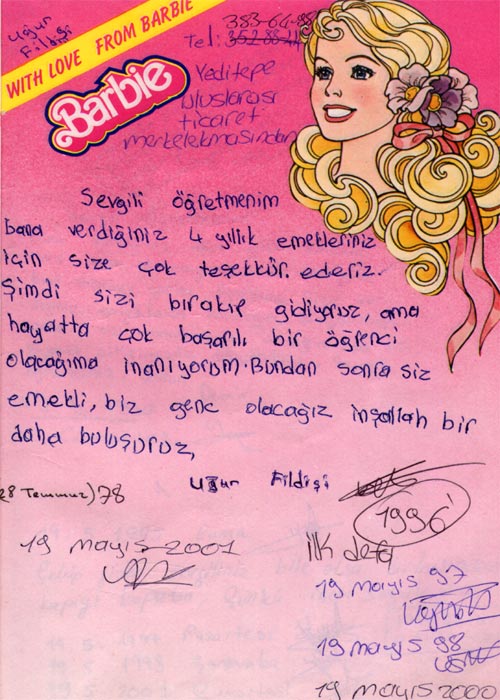 Uğur
Fildişi
WITH LOVE FROM BARBIE
Barbie
383-64-88
Tel: 352 88 21
Yeditepe
Uluslarası
ticaret
merkelekmasından
Sevgili öğretmenim
bana verdiğiniz 4 yıllık emekleriniz
için size çok teşekkür. ederiz.
Şimdi sizi bırakıp gidiyoruz, ama
hayatta çok başarılı bir öğrenci
olacağıma inanıyorum. Bundan sonra siz
emekli, biz genc olacağız inşallah bir
daha buluşuruz,
Uğur Fildişi
28 Temmuz) 78
1996
19 mayıs-2001
ilk defa
19 mayıs 97
19 mayıs 98
19 mayıs 2000